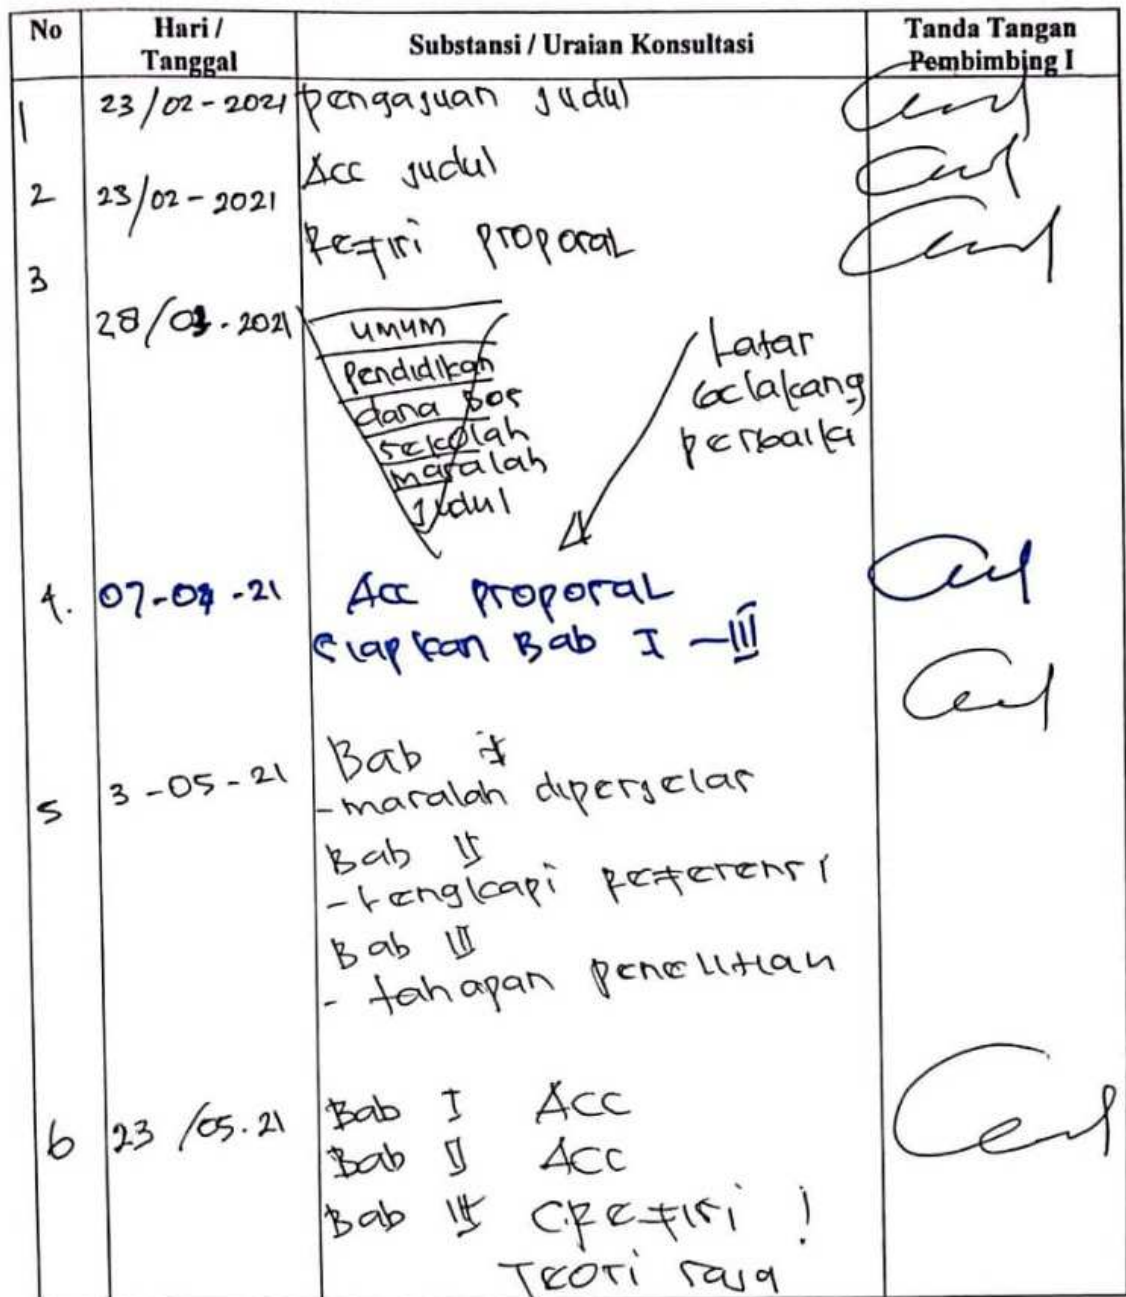 No Hari / Tanggal Substansi / Uraian Konsultasi Tanda Tangan Pembimbing I
1 23/02-2021 pengajuan judul
2 23/02-2021 Acc judul
3 Refisi proposal
28/03-2021
umum
pendidikan
dana Bos
sekolah
masalah
judul
Latar
belakang
perbaiki
4. 07-04-21 Acc proposal
siapkan Bab I - III
5 3-05-21 Bab I
- masalah diperjelas
Bab II
- Lengkapi Referensi
Bab III
- tahapan penelitian
6 23/05.21 Bab I Acc
Bab II Acc
Bab III (Refisi !
Teori saja